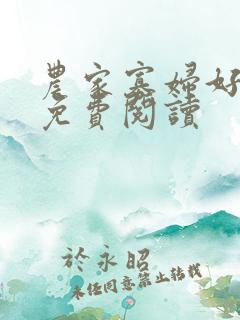 農家寡婦好
免費閱讀
於永昭
未經同意禁止轉載